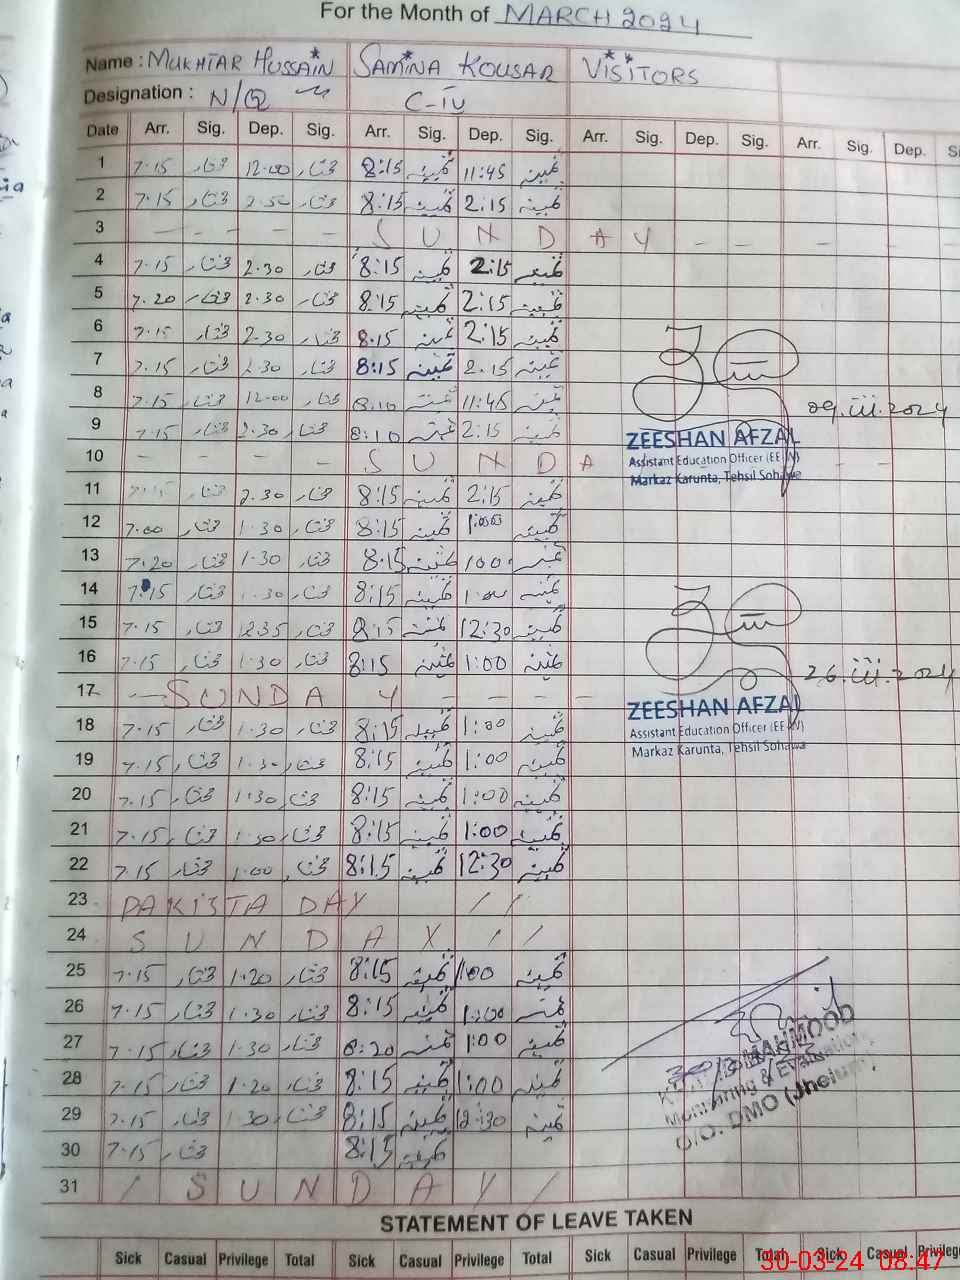 For the Month of MARCH 2024
Name : MUKHTAR HUSSAIN SAMINA KOUSAR VISITORS
Designation : N/Q C-IV
Date Arr. Sig. Dep. Sig. Arr. Sig. Dep. Sig. Arr. Sig. Dep. Sig. Arr. Sig. Dep.
1 7.15 مختار 12.00 مختار 8:15 ثمینہ 11:45 ثمینہ
2 7.15 مختار 2.30 مختار 8:15 ثمینہ 2:15 ثمینہ
3 — - - - - S U N D A Y - - - -
4 7.15 مختار 2.30 مختار 8:15 ثمینہ 2:15 ثمینہ
5 7.20 مختار 2.30 مختار 8:15 ثمینہ 2:15 ثمینہ
6 7.15 مختار 2.30 مختار 8:15 ثمینہ 2:15 ثمینہ
7 7.15 مختار 2.30 مختار 8:15 ثمینہ 2:15 ثمینہ
8 7.15 مختار 12.00 مختار 8:10 ثمینہ 11:45 ثمینہ
09.iii.2024
9 7.15 مختار 2.30 مختار 8:10 ثمینہ 2:15 ثمینہ
ZEESHAN AFZAL
Assistant Education Officer (EE-W)
Markaz Karunta, Tehsil Sohawa
10 - - - - S U N D A - -
11 7.15 مختار 2.30 مختار 8:15 ثمینہ 2:15 ثمینہ
12 7.00 مختار 1.30 مختار 8:15 ثمینہ 1:00 ثمینہ
13 7.20 مختار 1.30 مختار 8:15 ثمینہ 1:00 ثمینہ
14 7.15 مختار 1.30 مختار 8:15 ثمینہ 1:00 ثمینہ
15 7.15 مختار 12.35 مختار 8:15 ثمینہ 12:30 ثمینہ
16 7.15 مختار 1.30 مختار 8:15 ثمینہ 1:00 ثمینہ
26.iii.2024
17 — S U N D A Y - - - -
ZEESHAN AFZAL
Assistant Education Officer (EE-W)
Markaz Karunta, Tehsil Sohawa
18 7.15 مختار 1.30 مختار 8:15 ثمینہ 1:00 ثمینہ
19 7.15 مختار 1.30 مختار 8:15 ثمینہ 1:00 ثمینہ
20 7.15 مختار 1.30 مختار 8:15 ثمینہ 1:00 ثمینہ
21 7.15 مختار 1.30 مختار 8:15 ثمینہ 1:00 ثمینہ
22 7.15 مختار 1.00 مختار 8:15 ثمینہ 12:30 ثمینہ
23 PAKISTA DAY / /
24 S U N D A Y / /
25 7.15 مختار 1.20 مختار 8:15 ثمینہ 1:00 ثمینہ
26 7.15 مختار 1.30 مختار 8:15 ثمینہ 1:00 ثمینہ
27 7.15 مختار 1.30 مختار 8:20 ثمینہ 1:00 ثمینہ
28 7.15 مختار 1.20 مختار 8:15 ثمینہ 1:00 ثمینہ
29 7.15 مختار 1.30 مختار 8:15 ثمینہ 12:30 ثمینہ
MAHMOOD
Monitoring & Evaluation
O/O. DMO (Jhelum)
30 7.15 مختار 8:15 ثمینہ
31 / S U N D A Y /
STATEMENT OF LEAVE TAKEN
Sick Casual Privilege Total Sick Casual Privilege Total Sick Casual Privilege Total Sick Casual Privilege
30-03-24 08:47